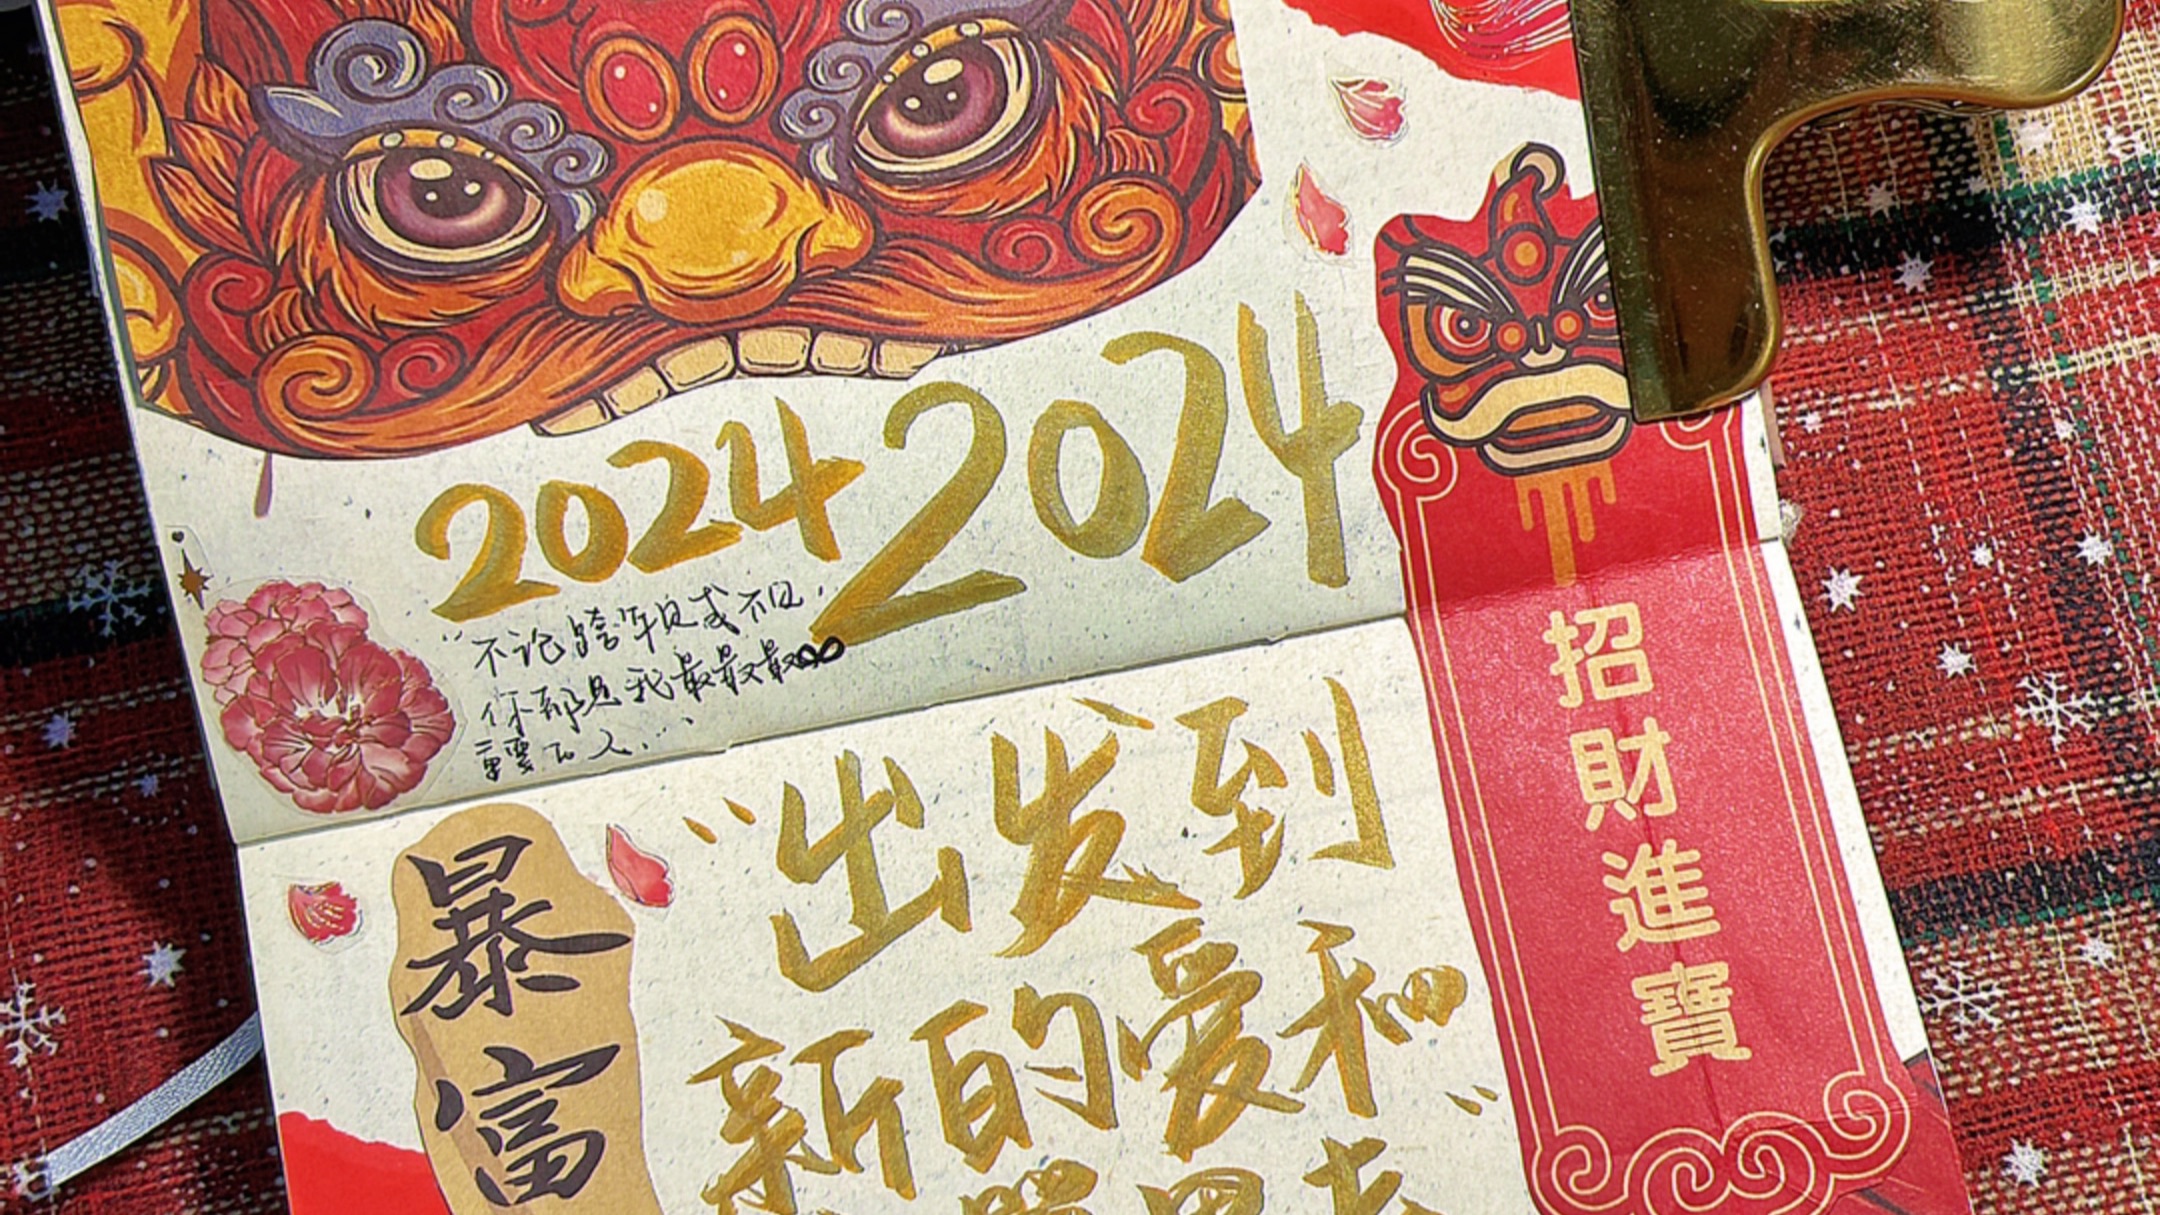 2024
2024
“不论跨年见或不见，
你都是我最最最
重要的人...
“出发到
新的爱和”
暴富
招財進寶